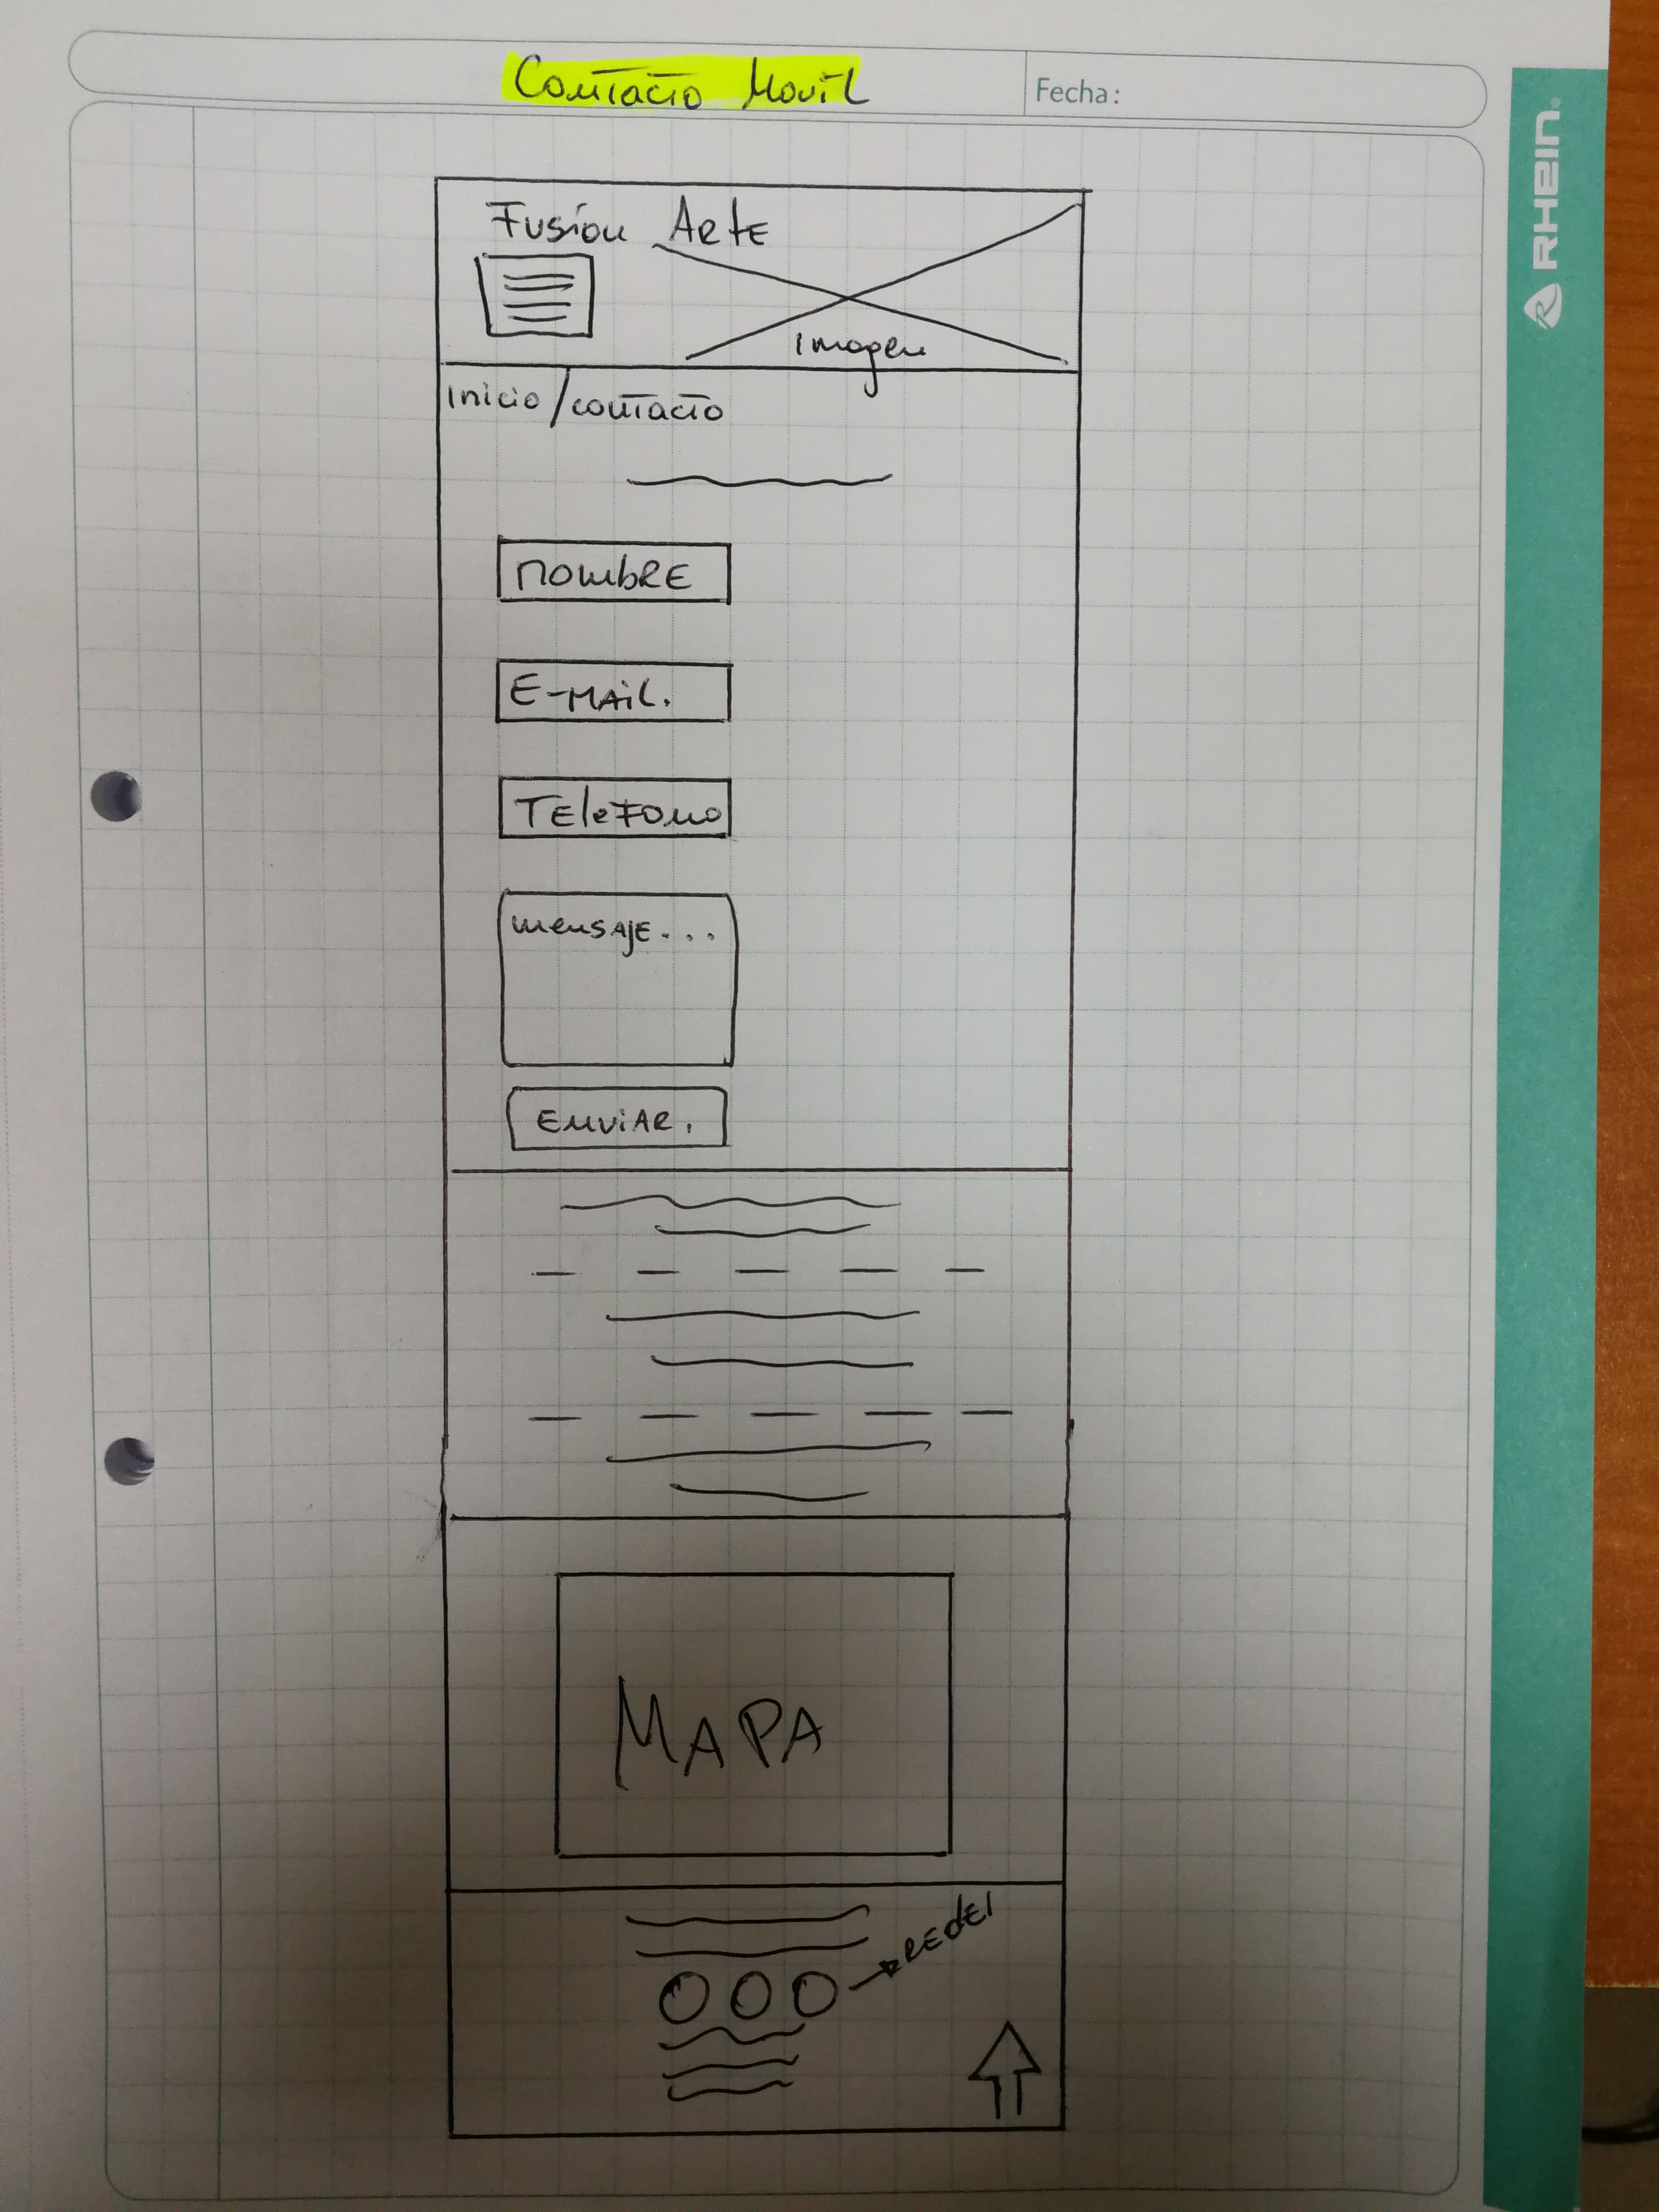 Contacto Movil
Fecha:
RHEIN
Fusion Arte
Imagen
Inicio/contacto
nombre
E-MAil.
TElefono
mensaje...
Enviar.
MAPA
REdEs